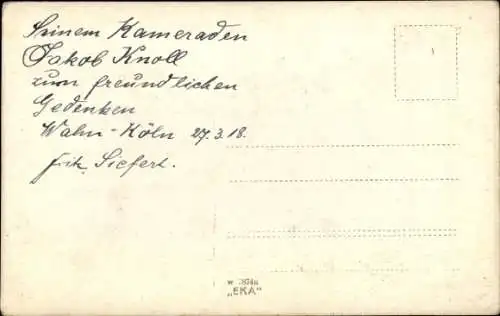 Seinem Kameraden
Jakob Knoll
zum freundlichen
Gedenken
Wahn-Köln 27.3.18.
Fritz Siefert.
W
„EKA"